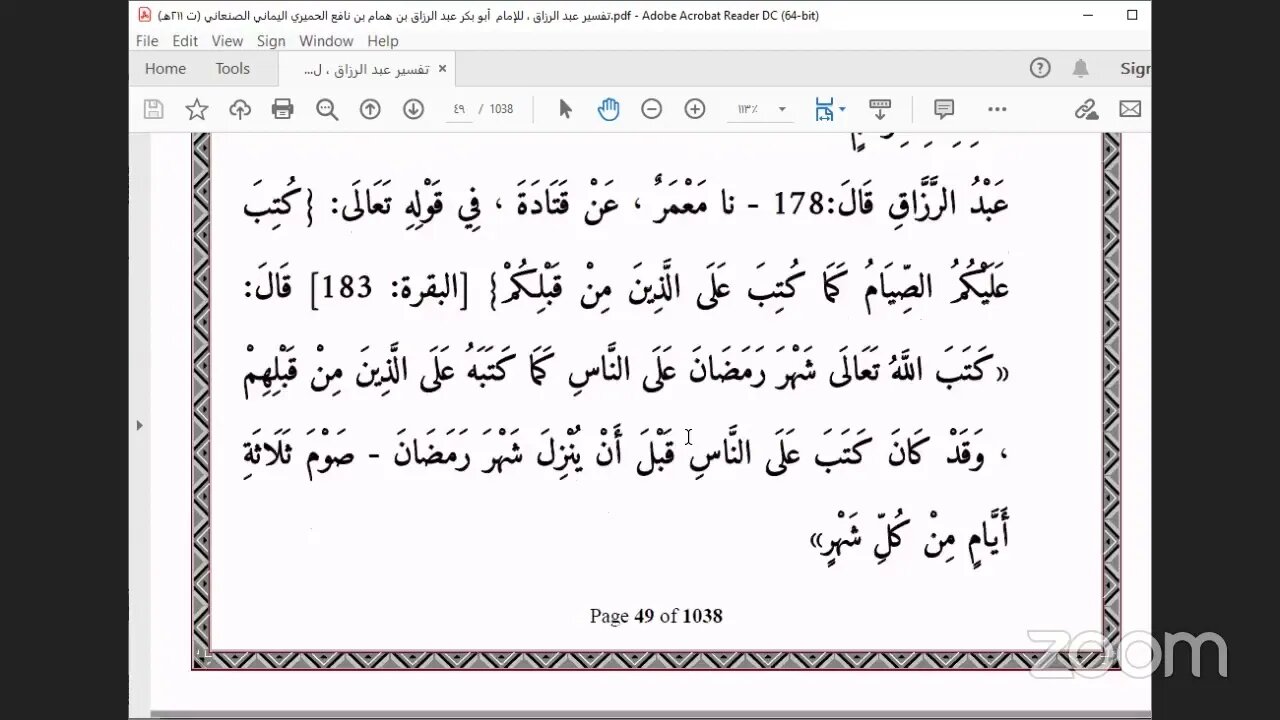 تفسير عبد الرزاق ، للإمام أبو بكر عبد الرزاق بن همام بن نافع الحميري اليماني الصنعاني (ت ٢١١هـ).pdf - Adobe Acrobat Reader DC (64-bit)
File Edit View Sign Window Help
Home Tools تفسير عبد الرزاق ، ل... × Sign
٤٩ / 1038 ١١٣٪
عَبْدُ الرَّزَّاقِ قَالَ:178 - نا مَعْمَرٌ ، عَنْ قَتَادَةَ ، فِي قَوْلِهِ تَعَالَى: {كُتِبَ
عَلَيْكُمُ الصِّيَامُ كَمَا كُتِبَ عَلَى الَّذِينَ مِنْ قَبْلِكُمْ} [البقرة: 183] قَالَ:
«كَتَبَ اللَّهُ تَعَالَى شَهْرَ رَمَضَانَ عَلَى النَّاسِ كَمَا كَتَبَهُ عَلَى الَّذِينَ مِنْ قَبْلِهِمْ
، وَقَدْ كَانَ كَتَبَ عَلَى النَّاسِ قَبْلَ أَنْ يُنْزِلَ شَهْرَ رَمَضَانَ - صَوْمَ ثَلَاثَةِ
أَيَّامٍ مِنْ كُلِّ شَهْرٍ»
Page 49 of 1038
zoom